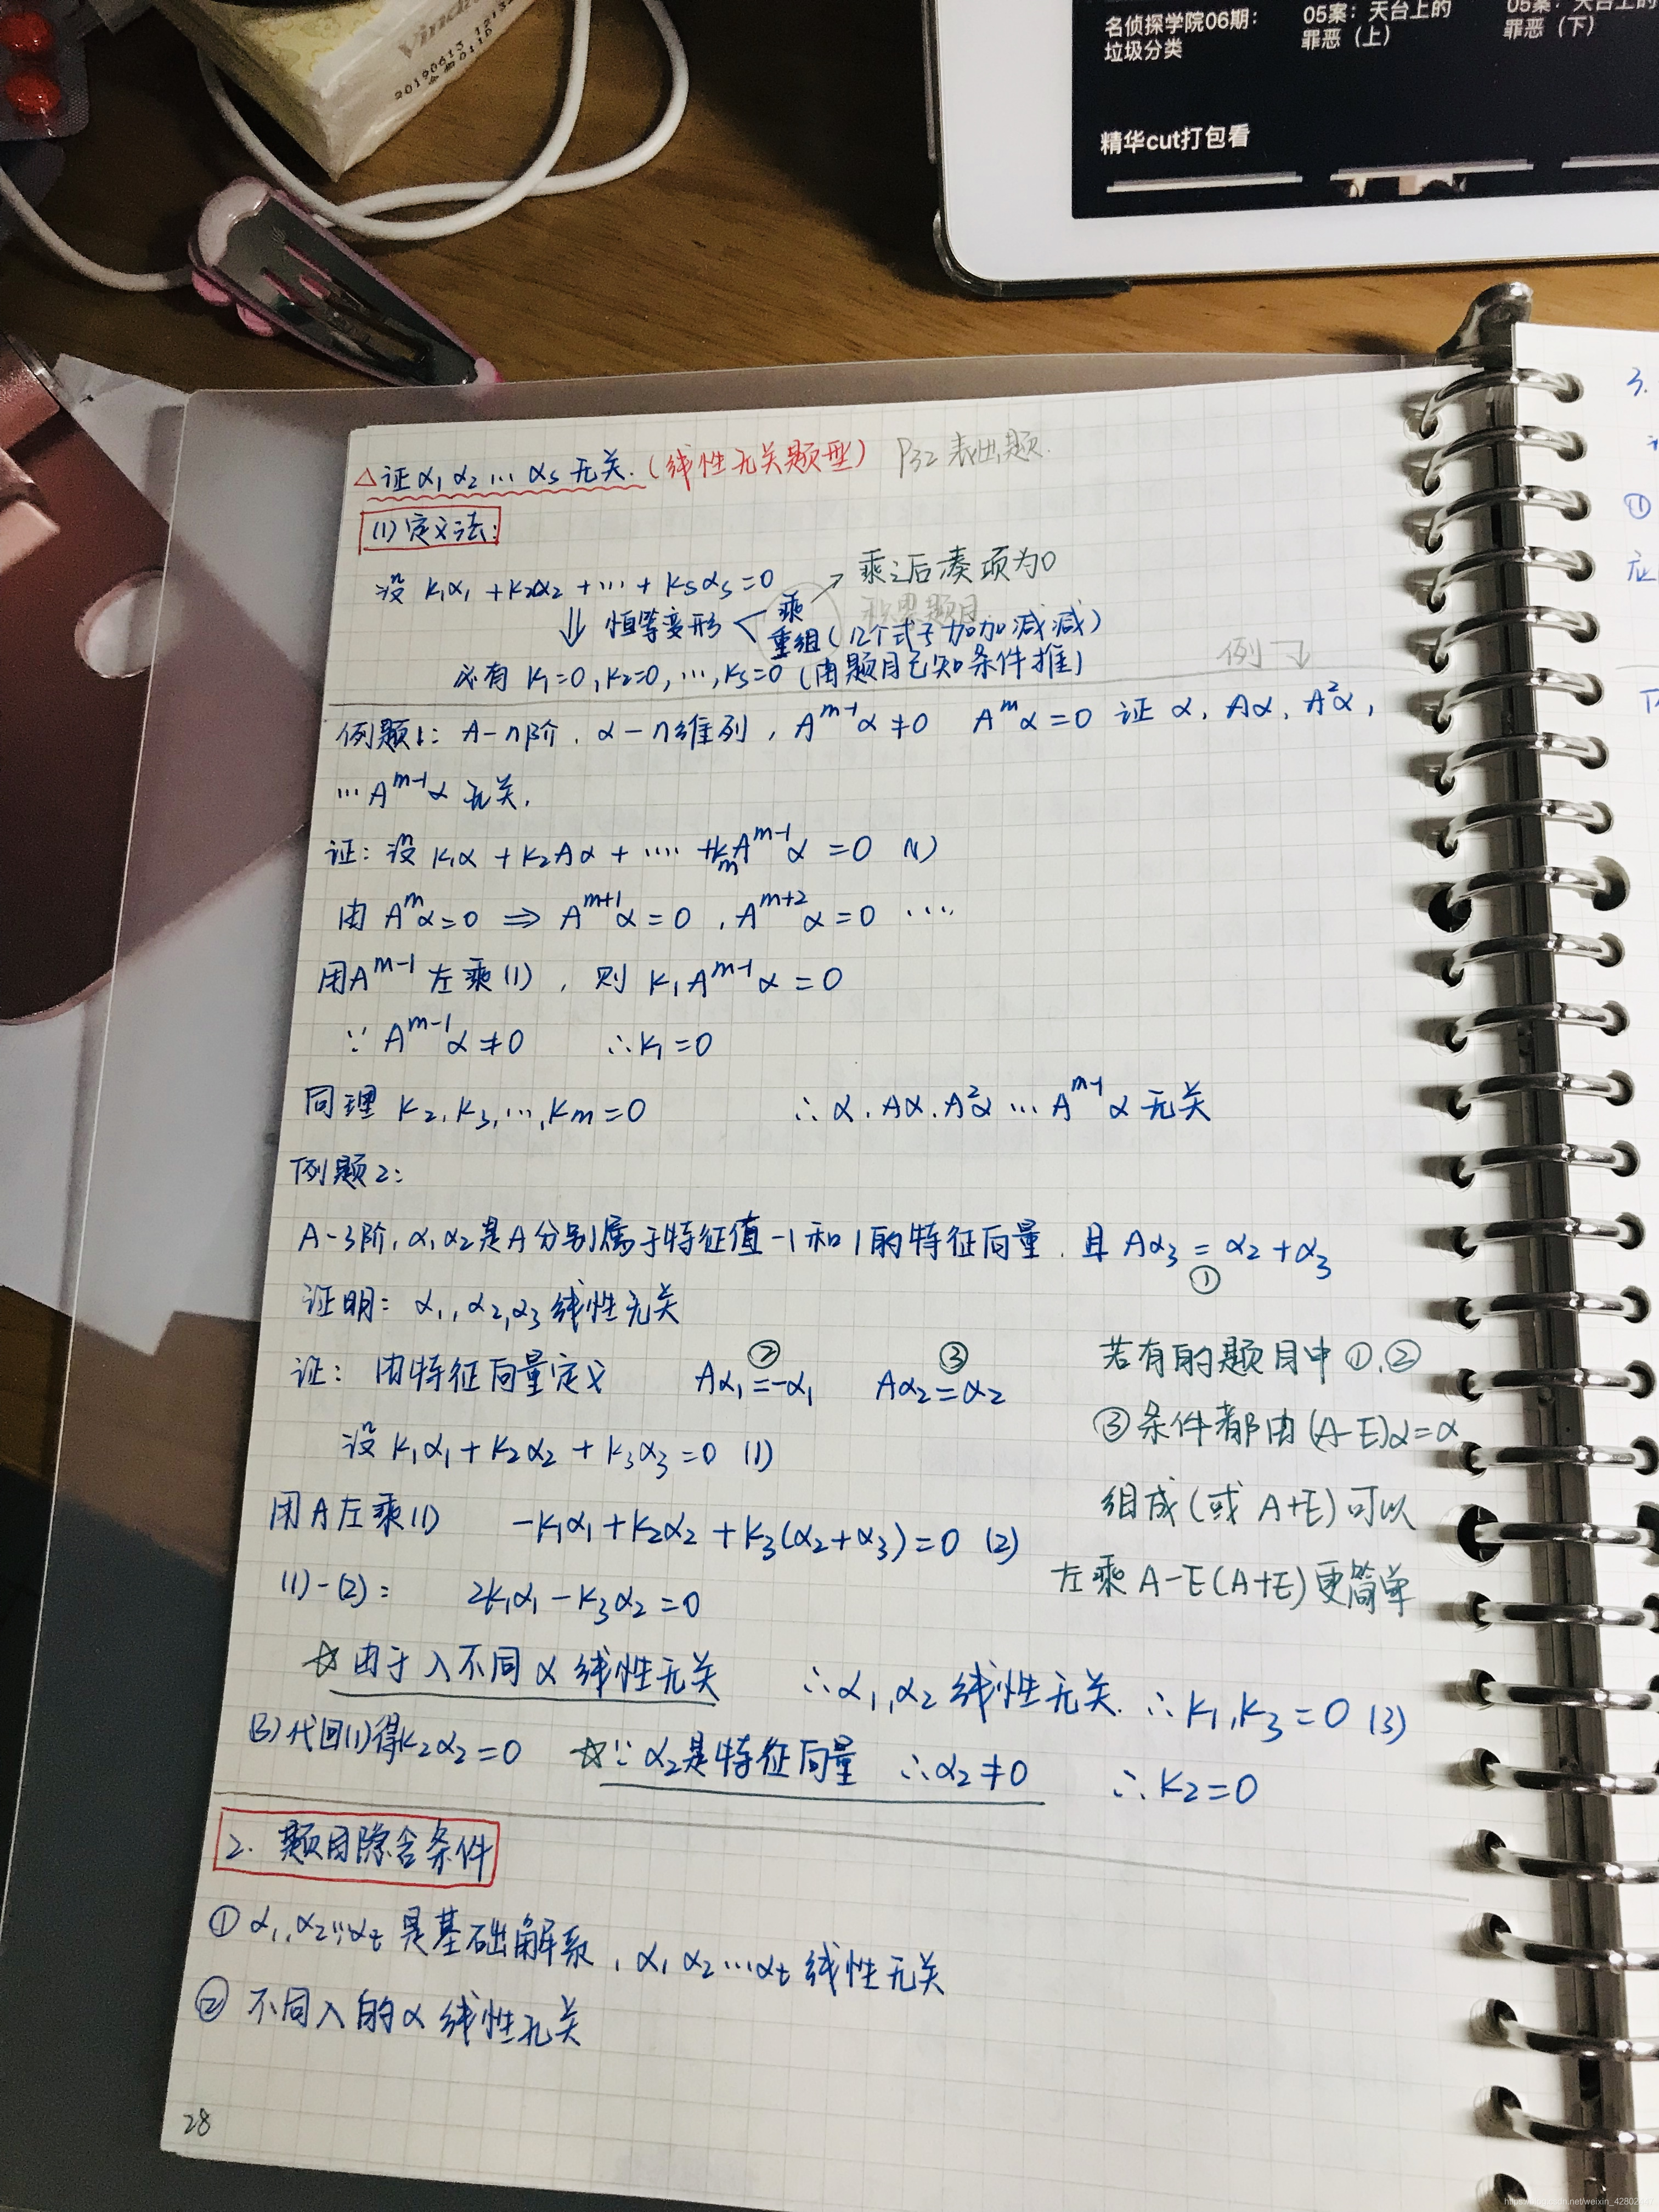 名侦探学院06期：
垃圾分类
05案：天台上的
罪恶（上）
05案：天台上的
罪恶（下）
精华cut打包看
20190612
△证α₁ α₂ … αs 无关.（线性无关题型） P32 表出题.
(1) 定义法:
设 k₁α₁ + k₂α₂ + … + ksαs = 0
乘之后凑项为0
⇓ 恒等变形 < 乘
重组（几个式子加加减减）
必有 k₁=0, k₂=0, …, ks=0 (由题目已知条件推)
例
例题1: A-n阶. α-n维列, A^{m-1}α≠0 A^mα=0 证 α, Aα, A²α,
… A^{m-1}α 无关.
证: 设 k₁α + k₂Aα + …. + k_mA^{m-1}α = 0 (1)
由 A^mα=0 ⇒ A^{m+1}α=0, A^{m+2}α=0 ….
用A^{m-1} 左乘(1), 则 k₁A^{m-1}α=0
∵ A^{m-1}α≠0 ∴k₁=0
同理 k₂, k₃, …, km=0 ∴ α, Aα, A²α … A^{m-1}α 无关
例题2:
A-3阶, α₁ α₂是A分别属于特征值-1和1的特征向量. 且 Aα₃ = α₂+α₃
①
证明: α₁, α₂, α₃ 线性无关
② ③
证: 由特征向量定义 Aα₁=-α₁ Aα₂=α₂
设 k₁α₁ + k₂α₂ + k₃α₃=0 (1)
用A左乘(1) -k₁α₁+k₂α₂+k₃(α₂+α₃)=0 (2)
(1)-(2): 2k₁α₁-k₃α₂=0
若有的题目中①,②
③条件都由(A-E)α=α
组成(或 A+E)可以
左乘 A-E(A+E)更简单
☆由于λ不同α线性无关 ∴α₁,α₂ 线性无关. ∴k₁,k₃=0 (3)
(3)代回(1)得k₂α₂=0 ☆∵α₂是特征向量 ∴α₂≠0 ∴k₂=0
2. 题目隐含条件
① α₁,α₂…αt 是基础解系, α₁ α₂…αt 线性无关
② 不同λ的α线性无关
28
3.
①